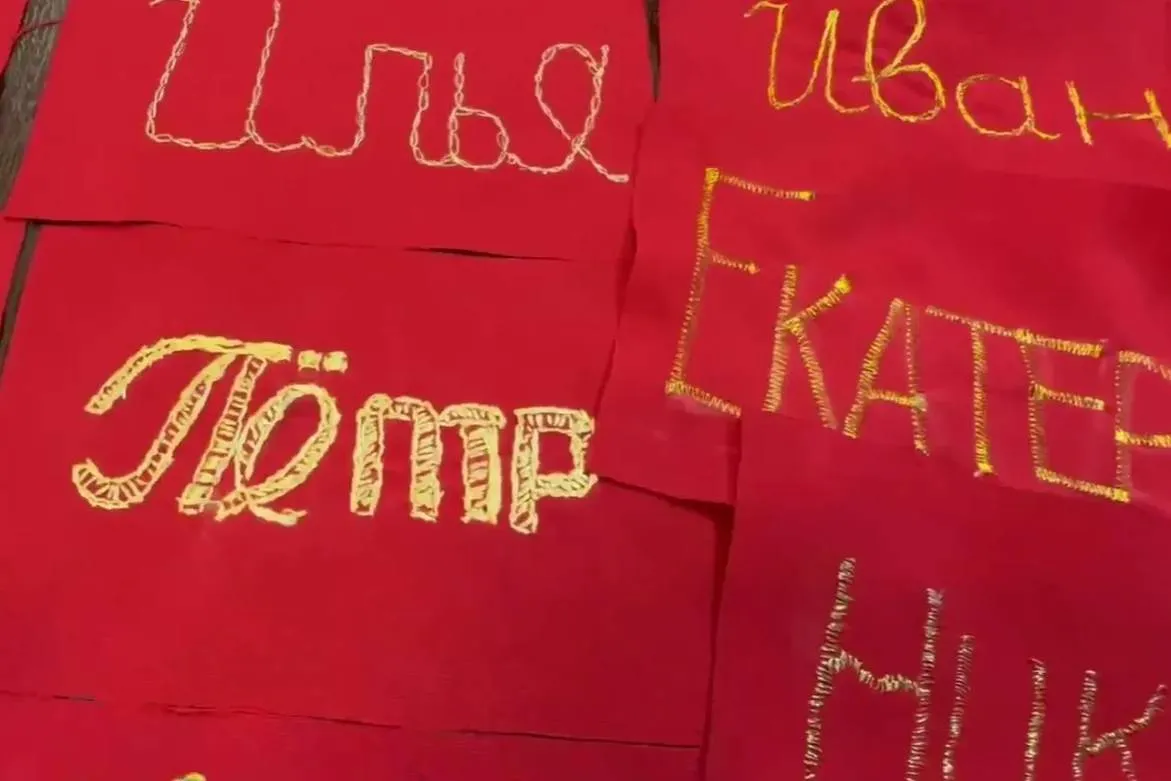 Илья
Иван
Пётр
ЕКАТЕР
НИК